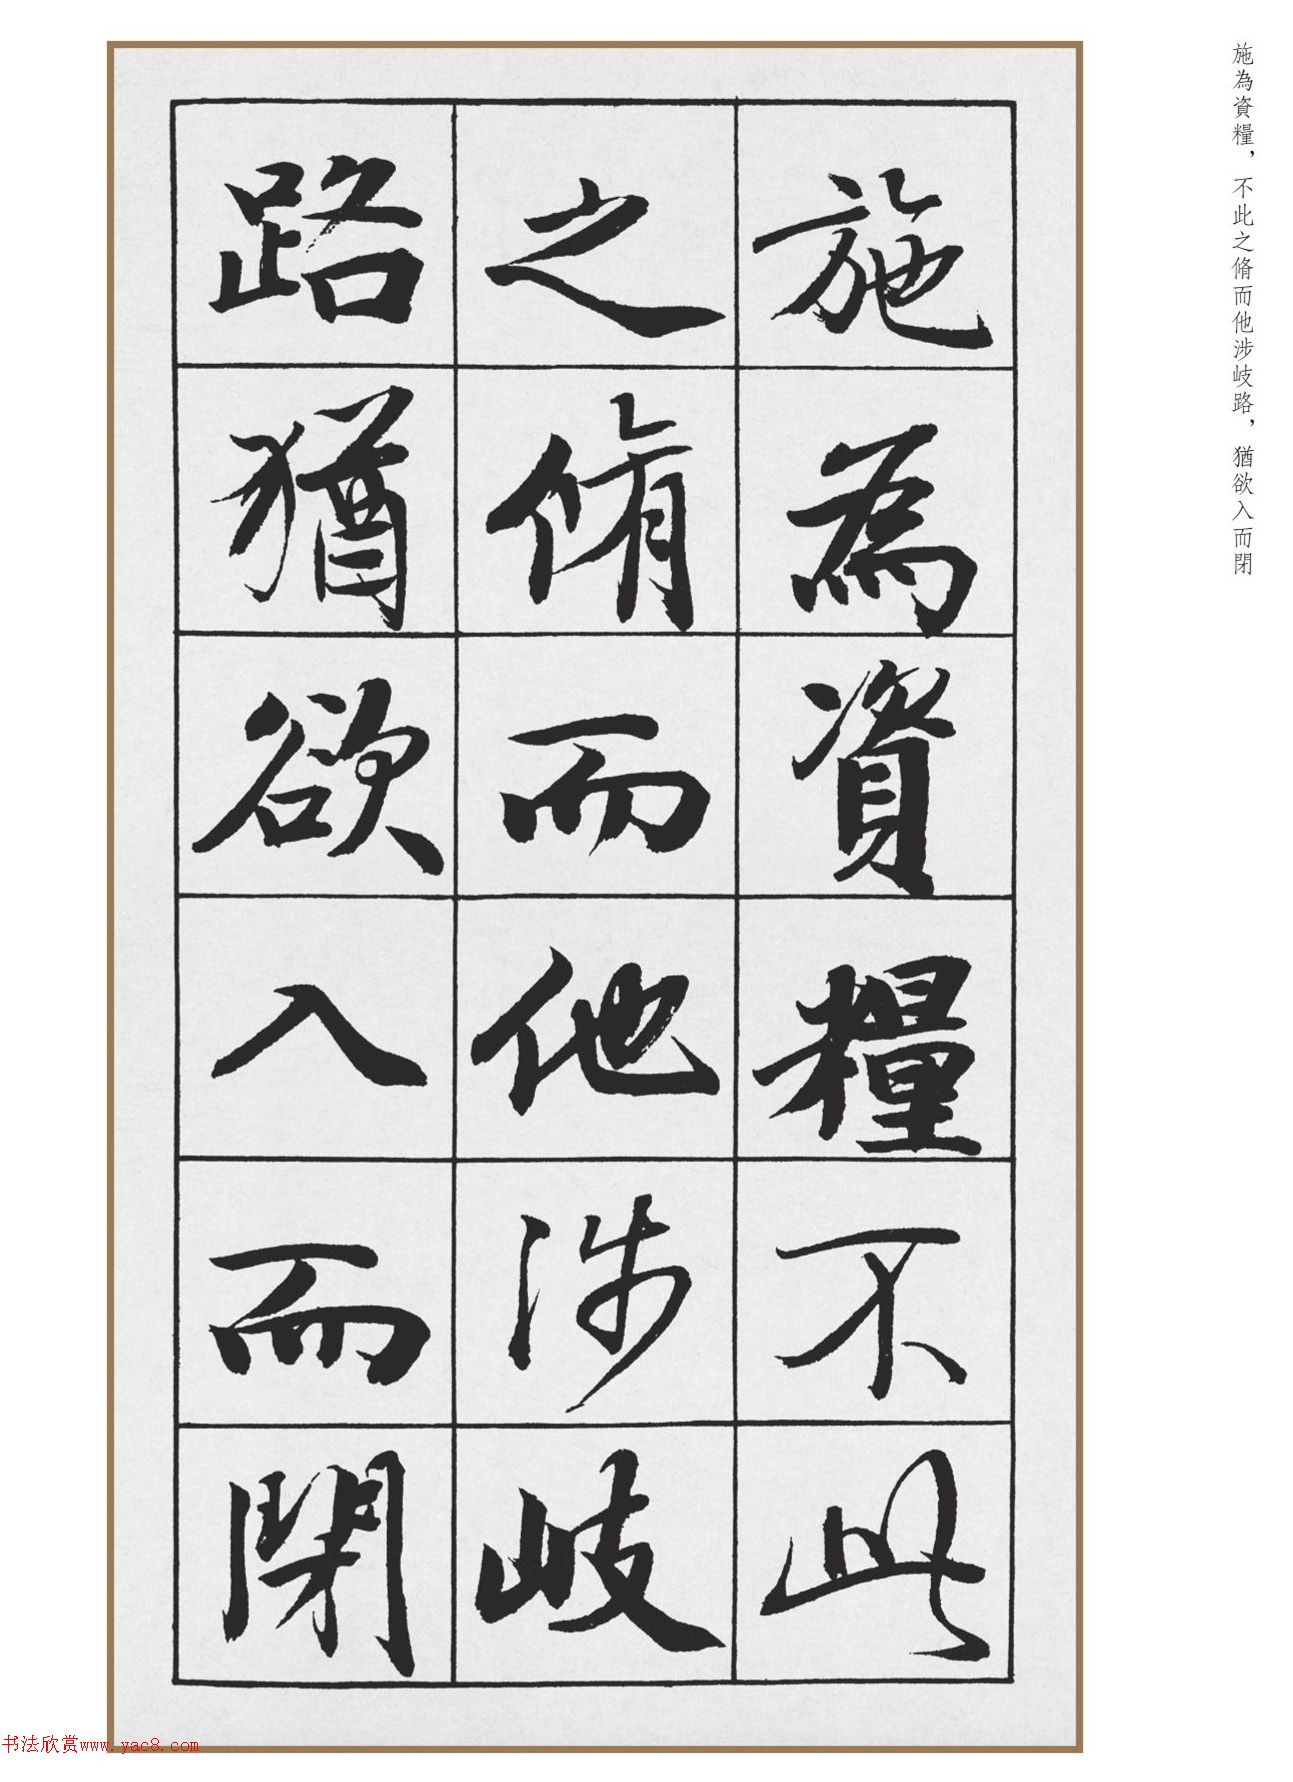 施為資糧，不此之脩而他涉岐路，猶欲入而閉
施為資糧不此
之脩而他涉岐
路猶欲入而閉
书法欣赏www.yac8.com